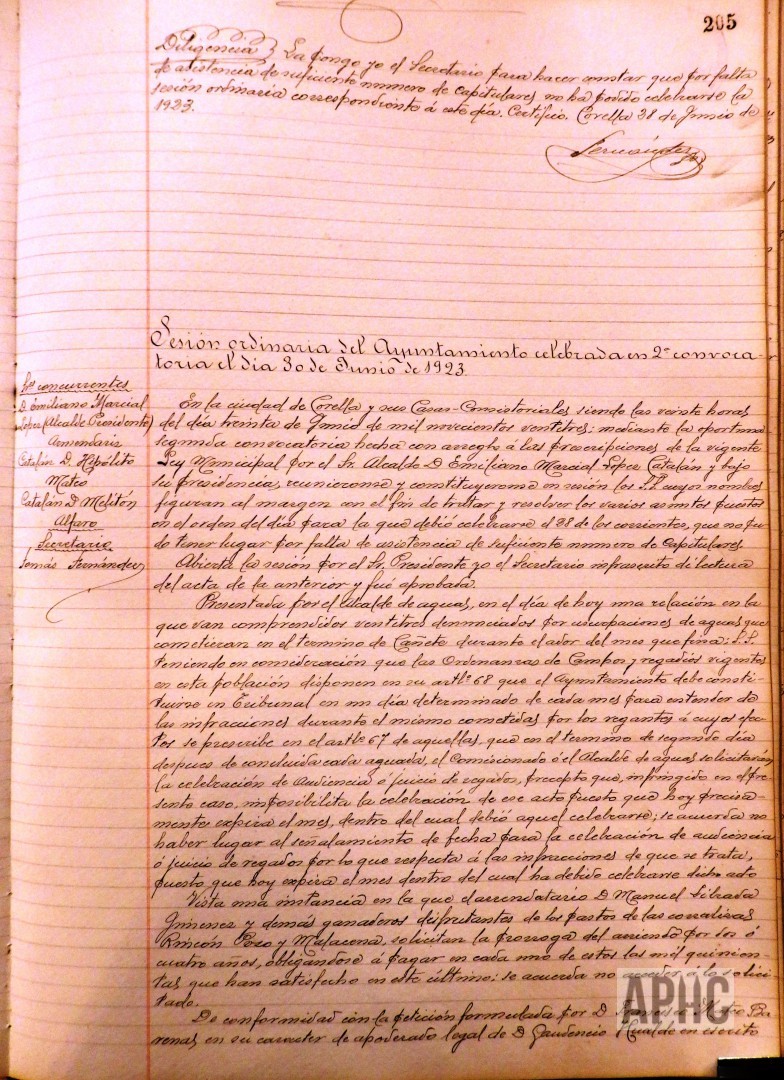 205
Diligencia} La pongo yo el Secretario para hacer constar que por falta
de asistencia de suficiente numero de capitulares no ha podido celebrarse la
sesión ordinaria correspondiente á este día. Certifico. Corella 28 de Junio de
1923.
Fernández
Sesión ordinaria del Ayuntamiento celebrada en 2ª convoca-
toria el día 30 de Junio de 1923
Sres concurrentes
D. Emiliano Marcial
Lopez (Alcalde Presidente)
Armendariz
Catalán D. Hipólito
Mateo
Catalán D. Melitón
Alfaro
Secretario
Tomás Fernández
En la ciudad de Corella y sus Casas-Consistoriales siendo las veinte horas
del día treinta de Junio de mil novecientos ventitres: mediante la oportuna
segunda convocatoria hecha con arreglo á las prescripciones de la vigente
Ley Municipal por el Sr. Alcalde D. Emiliano Marcial Lopez Catalán y bajo
su presidencia, reunieronse y constituyeronse en sesión los S.S. cuyos nombres
figuran al margen con el fin de tratar y resolver los varios asuntos puestos
en el orden del día para la que debió celebrarse el 28 de los corrientes, que no pu-
do tener lugar por falta de asistencia de suficiente numero de Capitulares.
Abierta la sesión por el Sr. Presidente yo el Secretario infrascrito di lectura
del acta de la anterior y fué aprobada.
Presentada por el Alcalde de aguas, en el día de hoy una relación en la
que van comprendidos ventitres denunciados por usurpaciones de aguas que
cometieran en el termino de Cañete durante el ador del mes que fina; S.S.
teniendo en consideración que las Ordenanzas de Campos y regadios vigentes
en esta población disponen en su artº 68 que el Ayuntamiento debe consti-
tuirse en Tribunal en un día determinado de cada mes para entender de
las infracciones durante el mismo cometidas por los regantes á cuyos efec-
tos se prescribe en el artº 67 de aquellas, que en el termino de segundo día
despues de concluida cada aguada, el Comisionado ó el Alcalde de aguas solicitarán
la celebración de Audiencia ó juicio de regados, precepto que, infringido en el pre-
sente caso, imposibilita la celebración de ese acto puesto que hoy precisa-
mente expira el mes, dentro del cual debió aquel celebrarse; se acuerda no
haber lugar al señalamiento de fecha para la celebración de audiencia
ó juicio de regados por lo que respecta á las infracciones de que se trata,
puesto que hoy expira el mes dentro del cual ha debido celebrarse dicho acto
Vista una instancia en la que el arrendatario D. Manuel Librada
Jimenez y demás ganaderos disfrutantes de los pastos de las corralizas
Rincón Poso y solicitan la prorroga del arriendo por dos ó
cuatro años, obligandose á pagar en cada uno de estos las mil quinien-
tas que han satisfecho en este último: se acuerda no acceder á lo solici-
tado.
De conformidad con la petición formulada por D. Francisco Mateo
en su caracter de apoderado legal de D. Gaudencio Alcalde en escrito
APHC